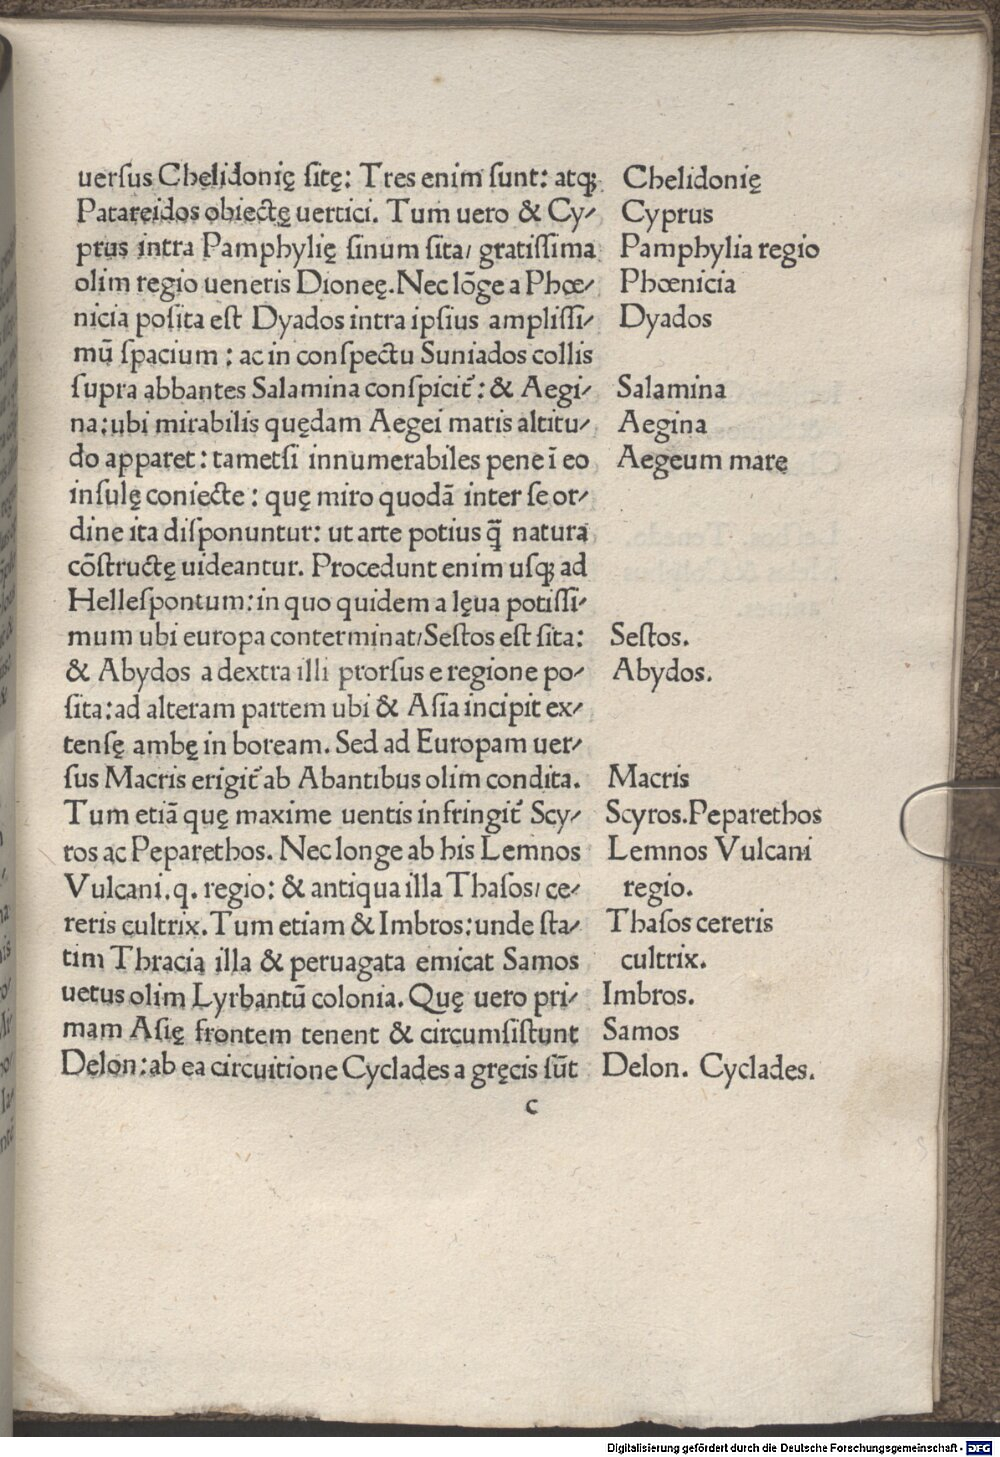 uerſus Chelidonię ſitę: Tres enim ſunt: atqꝫ
Patareidos obiectę uertici. Tum uero & Cy⸗
prus intra Pamphylię ſinum ſita/ gratiſſima
olim regio ueneris Dioneę. Nec lōge a Phœ⸗
nicia poſita eſt Dyados intra ipſius ampliſſi⸗
mū ſpacium : ac in conſpectu Suniados collis
ſupra abbantes Salamina conſpicit᷑: & Aegi⸗
na: ubi mirabilis quędam Aegei maris altitu⸗
do apparet: tametſi innumerabiles pene ī eo
inſulę coniecte : quę miro quodā inter ſe or⸗
dine ita diſponuntur: ut arte potius q̄ natura
cōſtructę uideantur. Procedunt enim uſqꝫ ad
Helleſpontum: in quo quidem a lęua potiſſi⸗
mum ubi europa conterminat/Seſtos eſt ſita:
& Abydos a dextra illi prorſus e regione po⸗
ſita: ad alteram partem ubi & Aſia incipit ex⸗
tenſę ambę in boream. Sed ad Europam uer⸗
ſus Macris erigit᷑ ab Abantibus olim condita.
Tum etiā quę maxime uentis infringit᷑ Scy⸗
ros ac Peparethos. Nec longe ab his Lemnos
Vulcani.q. regio: & antiqua illa Thaſos/ ce⸗
reris cultrix. Tum etiam & Imbros: unde ſta⸗
tim Thracia illa & peruagata emicat Samos
uetus olim Lyrbantū colonia. Quę uero pri⸗
mam Aſię frontem tenent & circumſiſtunt
Delon: ab ea circuitione Cyclades a gręcis ſūt
c
Chelidonię
Cyprus
Pamphylia regio
Phœnicia
Dyados
Salamina
Aegina
Aegeum marę
Seſtos.
Abydos.
Macris
Scyros. Peparethos
Lemnos Vulcani
regio.
Thaſos cereris
cultrix.
Imbros.
Samos
Delon. Cyclades.
Digitalisierung gefördert durch die Deutsche Forschungsgemeinschaft - DFG